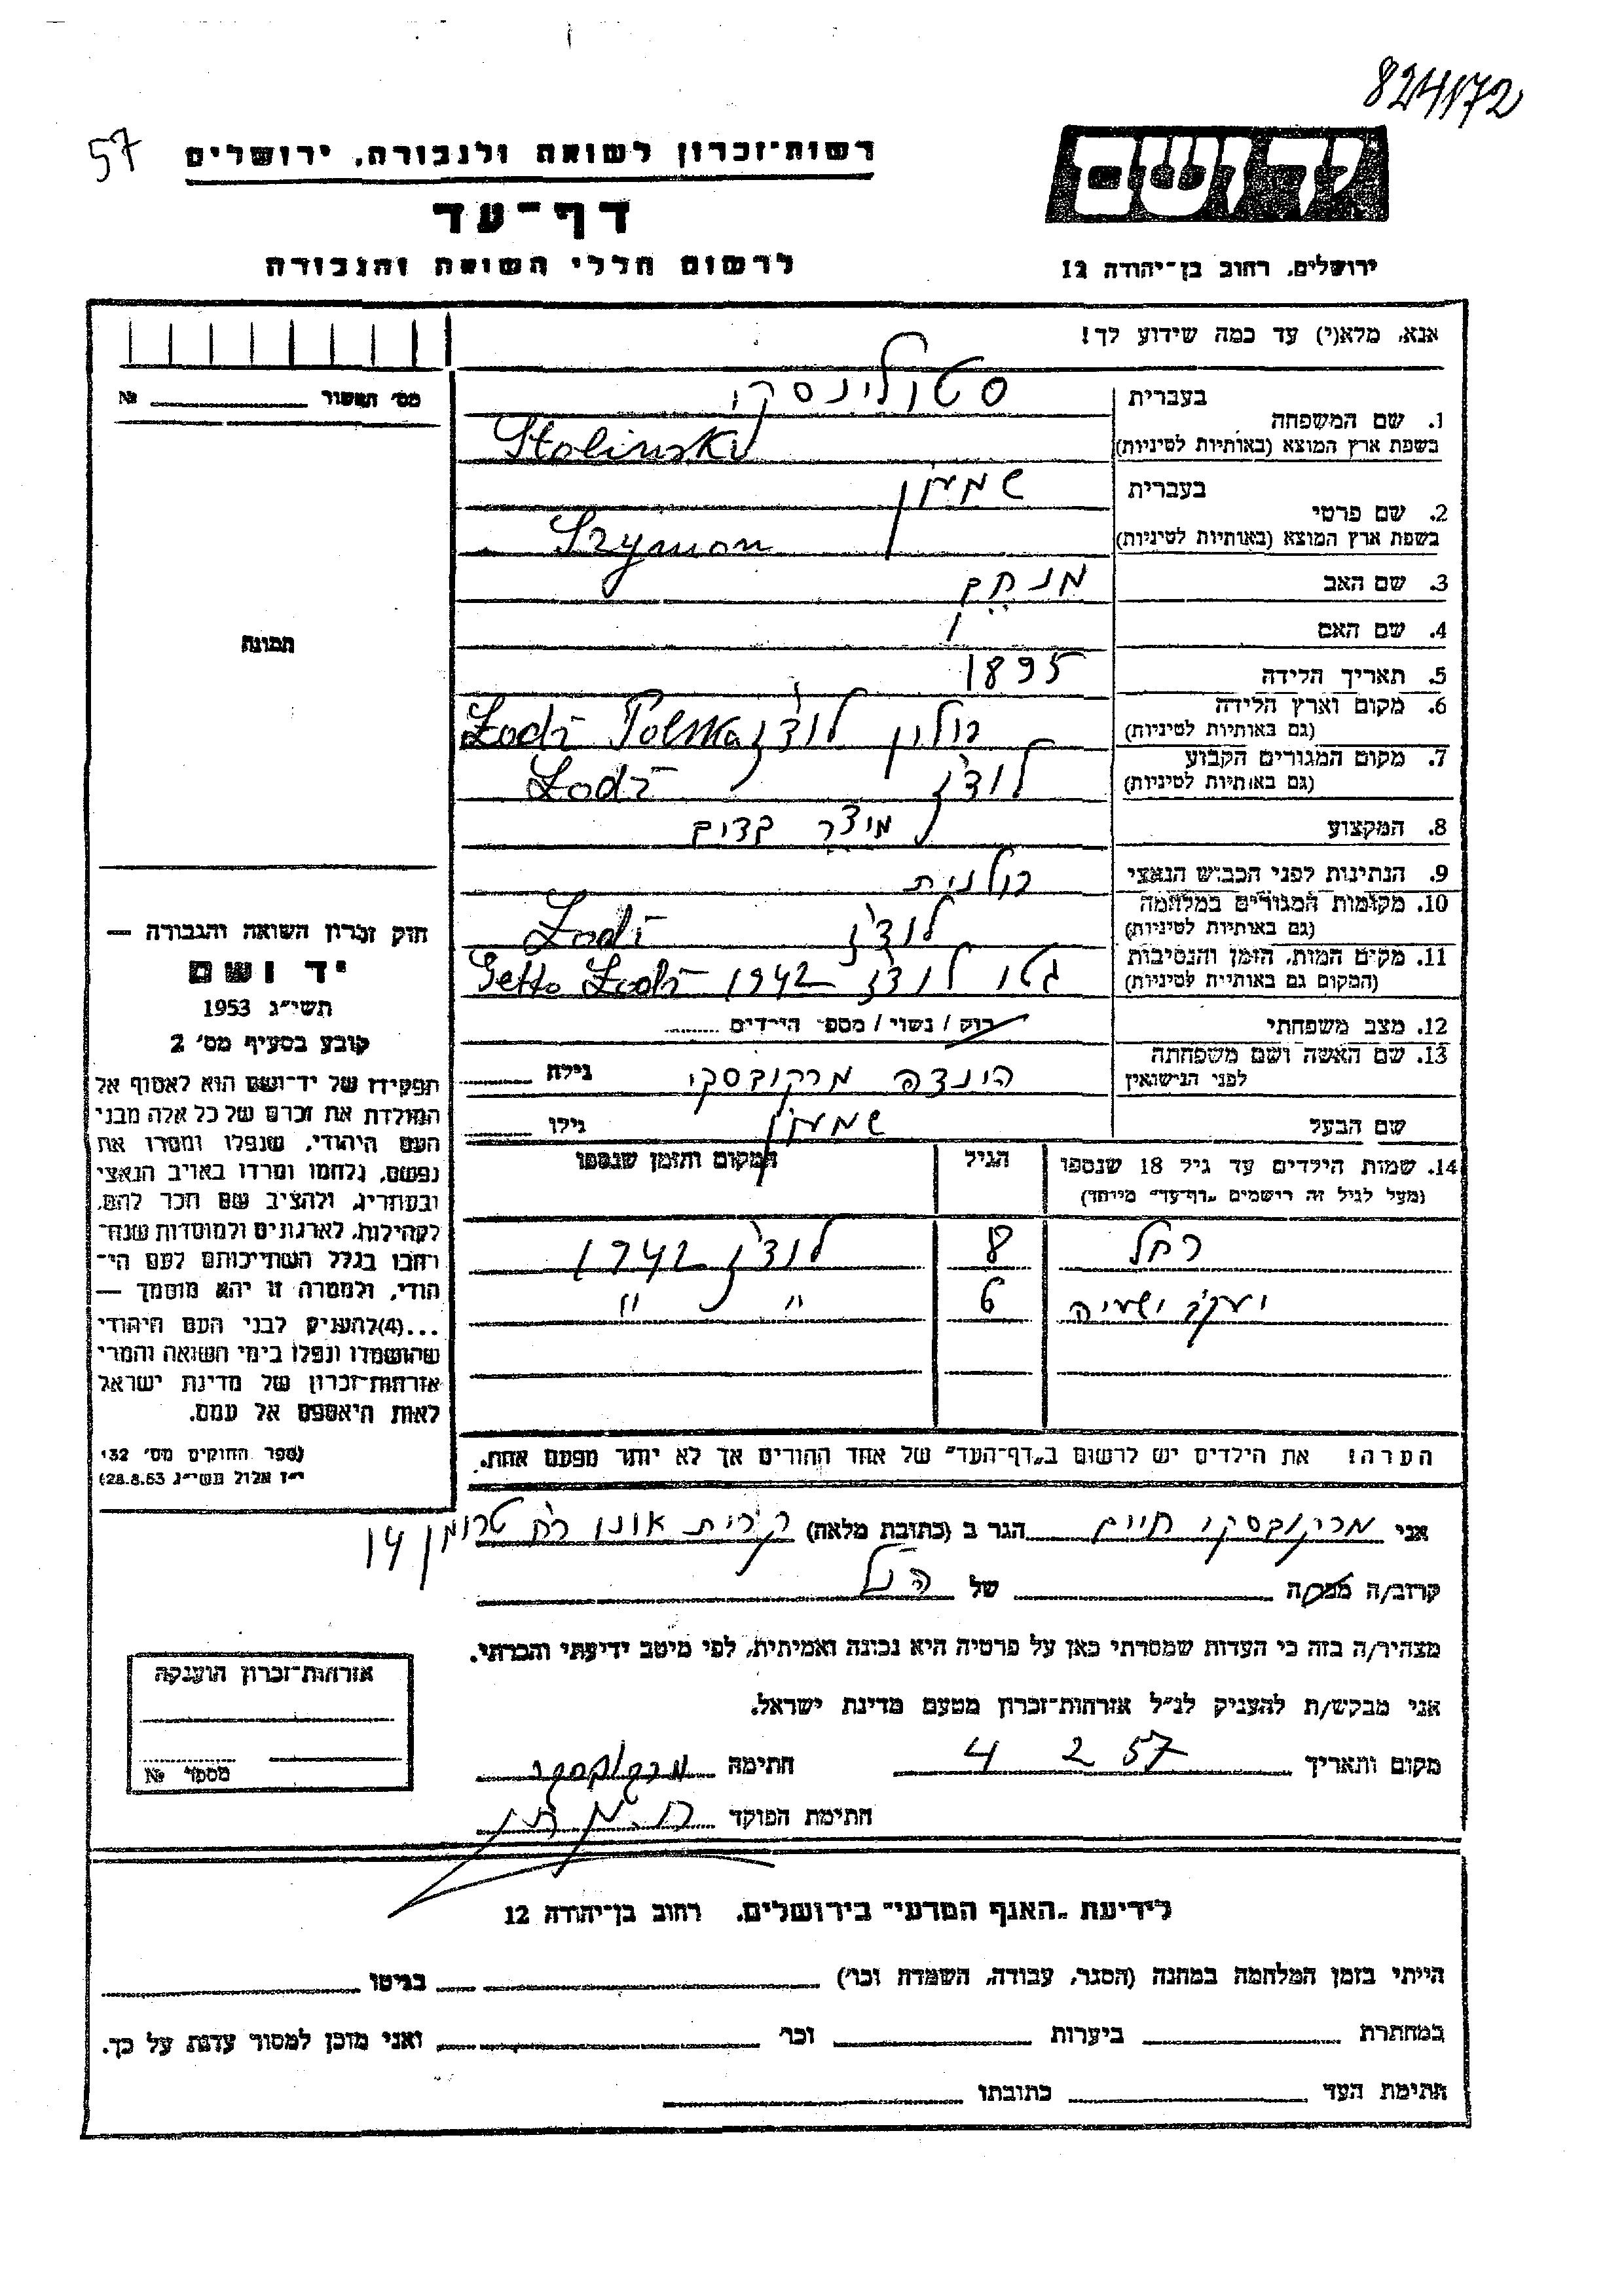 824/172
57
רשות־זכרון לשואה ולגבורה, ירושלים
ידושם
דף־עד
לרשום חללי השואה והגבורה
ירושלים, רחוב בן־יהודה 12
אנא, מלא(י) עד כמה שידוע לך!
מס׳ תשור № ____
1. שם המשפחה בעברית סטולינסקי
בשפת ארץ המוצא (באותיות לטיניות) Stolinski
2. שם פרטי בעברית שמעון
בשפת ארץ המוצא (באותיות לטיניות) Szymon
3. שם האב מנחם
4. שם האם
5. תאריך הלידה 1895
6. מקום וארץ הלידה (גם באותיות לטיניות) פולין לודז׳ Łodź Polska
7. מקום המגורים הקבוע (גם באותיות לטיניות) לודז׳ Łodź
8. המקצוע מוצר בדים
9. הנתינות לפני הכבוש הנאצי פולנית
10. מקומות המגורים במלחמה (גם באותיות לטיניות) לודז׳ Łodź
11. מקום המות, הזמן והנסיבות (המקום גם באותיות לטיניות) גטו לודז׳ 1942 Getto Łodź
12. מצב משפחתי רוק / נשוי / מספר הילדים
13. שם האשה ושם משפחתה לפני הנישואין הינדה מרקובסקי גילה
שם הבעל שמעון גילו
תמונה
14. שמות הילדים עד גיל 18 שנספו הגיל המקום והזמן שנספו
(מעל לגיל זה רישמים „דף־עד״ מיוחד)
רחל 8 לודז׳ 1942
יעקב ישעיה 6 " "
הערה! את הילדים יש לרשום ב„דף־העד״ של אחד ההורים אך לא יותר מפעם אחת.
חוק זכרון השואה והגבורה —
יד ושם
תשי״ג 1953
קובע בסעיף מס׳ 2
תפקידו של יד־ושם הוא לאסוף אל
המולדת את זכרם של כל אלה מבני
העם היהודי, שנפלו ומסרו את
נפשם, נלחמו ומרדו באויב הנאצי
ובעוזריו, ולהציב שם וזכר להם,
לקהילות, לארגונים ולמוסדות שנח־
רבו בגלל השתייכותם לעם הי־
הודי, ולמטרה זו יהא מוסמך —
...(4)להעניק לבני העם היהודי
שהושמדו ונפלו בימי השואה והמרי
אזרחות־זכרון של מדינת ישראל
לאות היאספם אל עמם.
(ספר החוקים מס׳ 132
י״ז אלול תשי״ג 28.8.53)
אני מרקובסקי חיים הגר ב (כתובת מלאה) קירית אונו רח׳ טרומן 14
קרוב/ה מכר/ה של הנ״ל
מצהיר/ה בזה כי העדות שמסרתי כאן על פרטיה היא נכונה ואמיתית, לפי מיטב ידיעתי והכרתי.
אני מבקש/ת להעניק לנ״ל אזרחות־זכרון מטעם מדינת ישראל.
מקום ותאריך 4 2 57 חתימה מרקובסקי
חתימת הפוקד
אזרחות־זכרון הוענקה
מספר №
לידיעת „האגף המדעי״ בירושלים, רחוב בן־יהודה 12
הייתי בזמן המלחמה במחנה (הסגר, עבודה, השמדה וכר׳) ____ בגיטו ____
במחתרת ____ ביערות ____ וכר׳ ____ ואני מוכן למסור עדות על כך.
חתימת העד ____ כתובתו ____